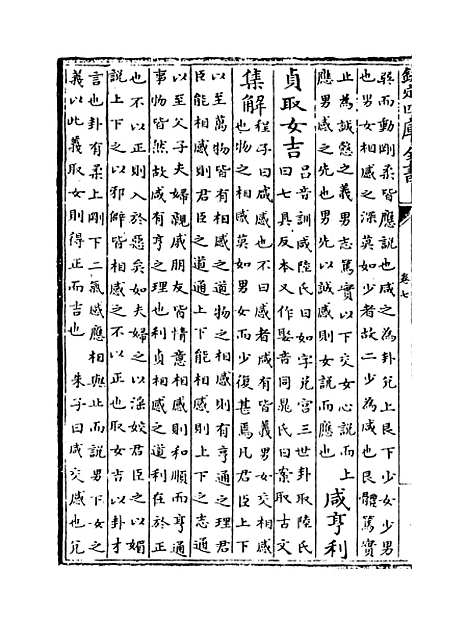 欽定四庫全書
卷七
巽而動剛柔皆應說也咸之為卦兌上艮下少女少男
也男女相感之深莫如少者故二少為咸也艮體篤實
止為誠慤之義男志篤實以下交女心說而上
應男感之先也男先以誠感則女說而應也
咸亨利
貞取女吉
吕音訓咸陸氏曰如字兌宮三世卦取陸氏
曰七具反本又作娶音同晁氏曰案取古文
集解
程子曰咸感也不曰感者咸有皆義男女交相感
也物之相感莫如男女而少復甚焉凡君臣上下
以至萬物皆有相感之道物之相感則有亨通之理君
臣能相感則君臣之道通上下能相感則上下之志通
以至父子夫婦親戚朋友皆情意相感則和順而亨通
事物皆然故咸有亨之理也利貞相感之道利在於正
也不以正則入於惡矣如夫婦之以淫姣君臣之以媚
說上下之以邪僻皆相感之不以正也取女吉以卦才
言也卦有柔上剛下二氣感應相與止而說男下女之
義以此義取女則得正而吉也 朱子曰咸交感也兌